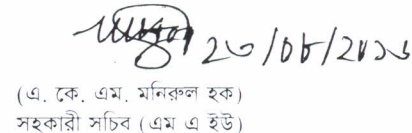 ২৩/০৮/২০১৬
(এ. কে. এম. মনিরুল হক)
সহকারী সচিব (এম এ ইউ)